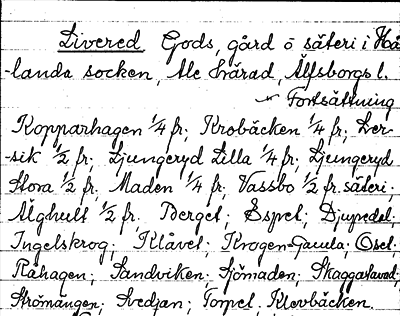 Livered Gods, gård o säteri i Hå
-landa socken, Ale härad, Älfsborgs l.
Fortsättning
Kopparhagen 1/4 fr; Krobäcken 1/4 fr; Ler-
sik 1/2 fr; Ljungeryd Lilla 1/4 fr; Ljungeryd
Stora 1/2 fr; Maden 1/4 fr; Vassbo 1/2 fr. säteri;
Älghult 1/2 fr. Berget; Espet; Djupedal;
Ingelskrog; Klåvet; Krogen-Gamla;
Råhagen; Sandviken; Sjömaden;
Strömängen; Svedjan; Torpet; Klevbäcken.